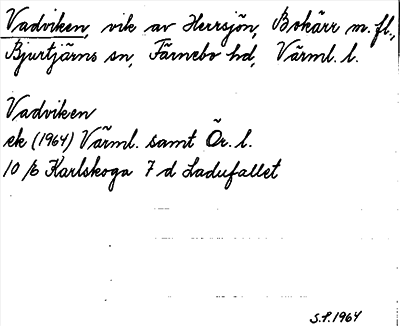 Vadviken, vik av Herrsjön, Bokärr m. fl.,
Bjurtjärns sn, Färnebo hd, Värml. l.
Vadviken
ek (1964) Värml. samt Ör. l.
10 E Karlskoga 7 d Ladufallet
S.F. 1964